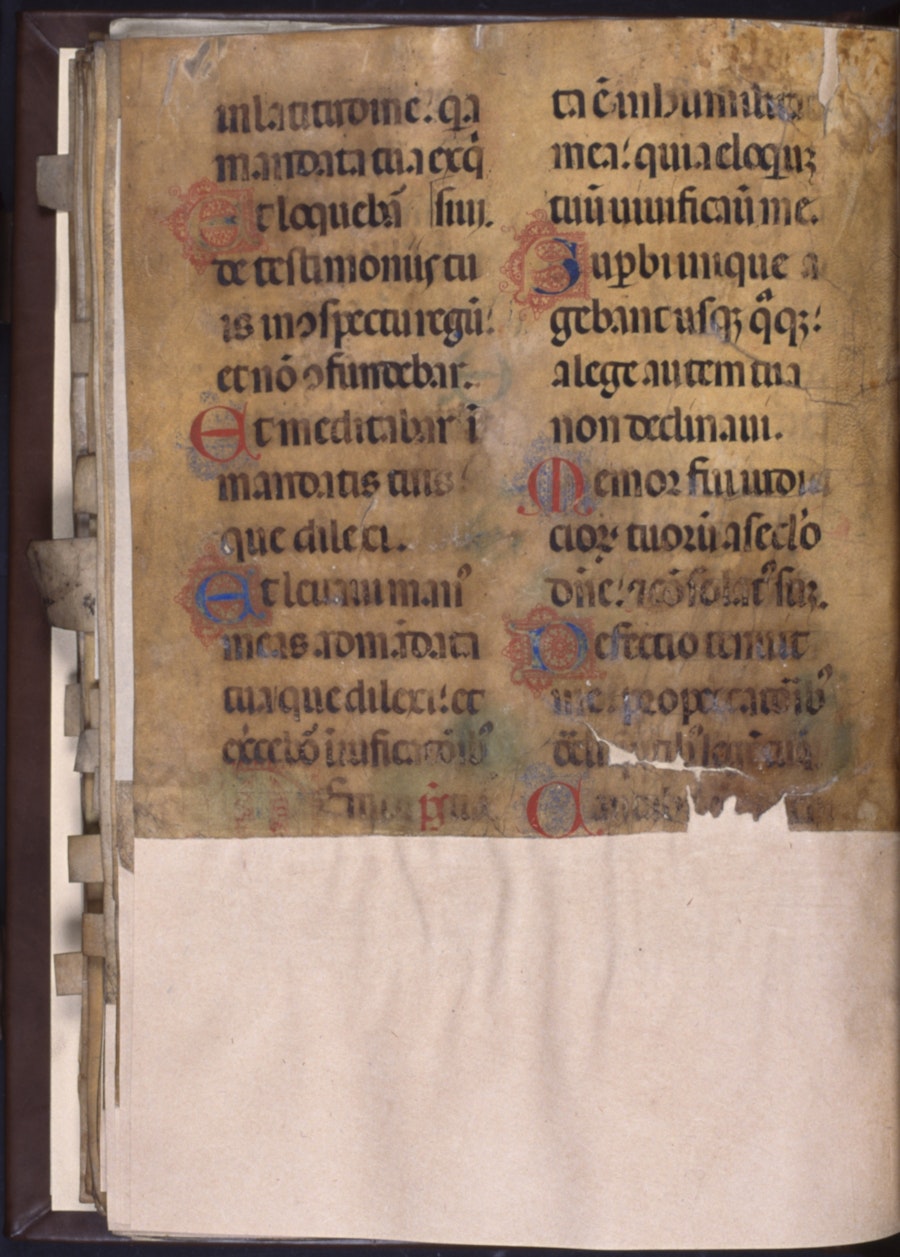 in latitudine: q̄a
mandata tua exq̄
Et loquebā
de testimoniis tu
is in ɔspectu regū:
et nō ɔfundebar.
Et meditabar ī
mandatis tuis
que dilexi.
Et leuaui man᷒
meas ad mādata
tua que dilexi: et
excebō ī iustificatōib᷒
ta ē in humilitate
mea: quia eloquiū
tuū uiuificauit me.
Supbi inique a
gebant usqꝫ q̄qꝫ:
a lege autem tua
non declinaui.
Memor fui iudi
cioꝝ tuorū a seclo
dñe: ⁊ cōsolat᷒ sū.
Defectio tenuit
me: pro peccatoribꝰ